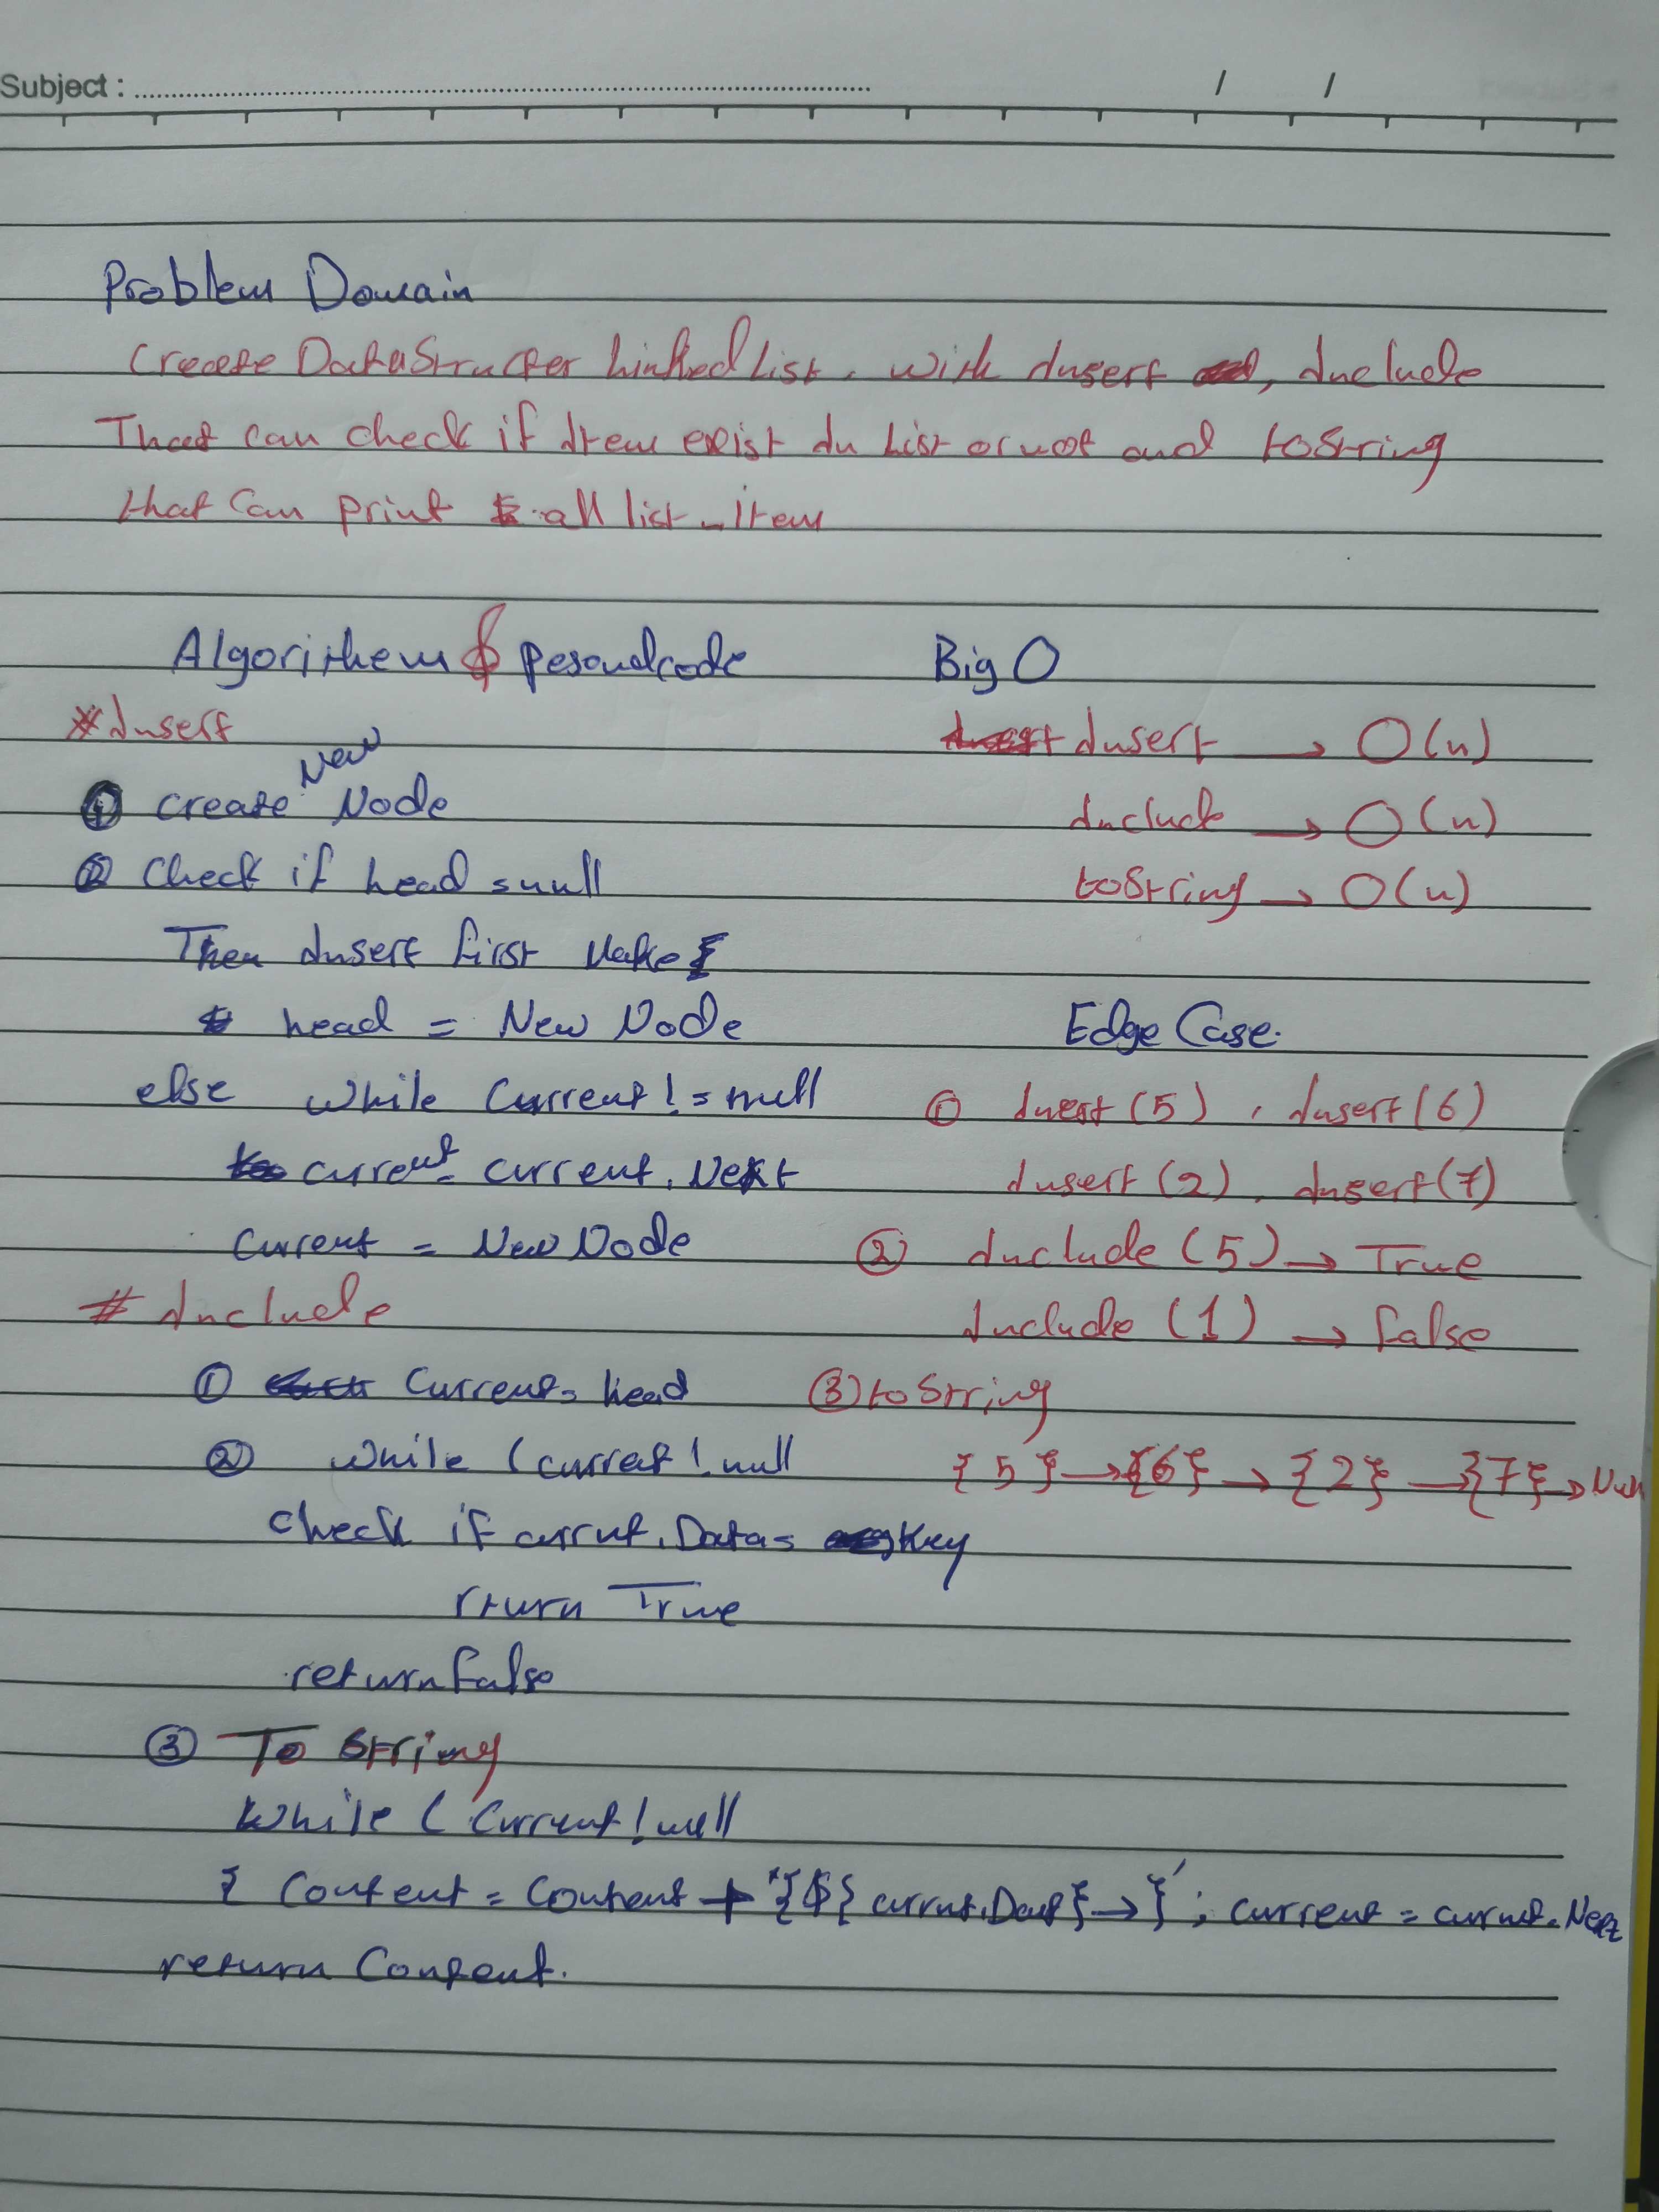 Subject : / /
Problem Domain
Create DataStructer Linked List. with Insert, Include
That can check if Item exist In List or not and toString
that Can print all list-Item
Algorithem & pesoudcode
#Insert
① create New Node
② Check if head = null
Then Insert first Make
head = New Node
else while Current != null
current = current.Next
Current = New Node
# Include
① Current = head
② while (current ! null
check if currnt.Data = Key
rturn True
return false
③ To String
While ( Current ! null
{ Content = Content + '{${ currnt.Dat}→}' ; current = curnt.Next
return Content.
Big O
Insert → O(n)
Include → O(n)
toString → O(n)
Edge Case.
① Insert (5) , Insert (6)
Insert (2) , Insert (7)
② Include (5) → True
Include (1) → false
③ to String
{5} → {6} → {2} → {7} → Null